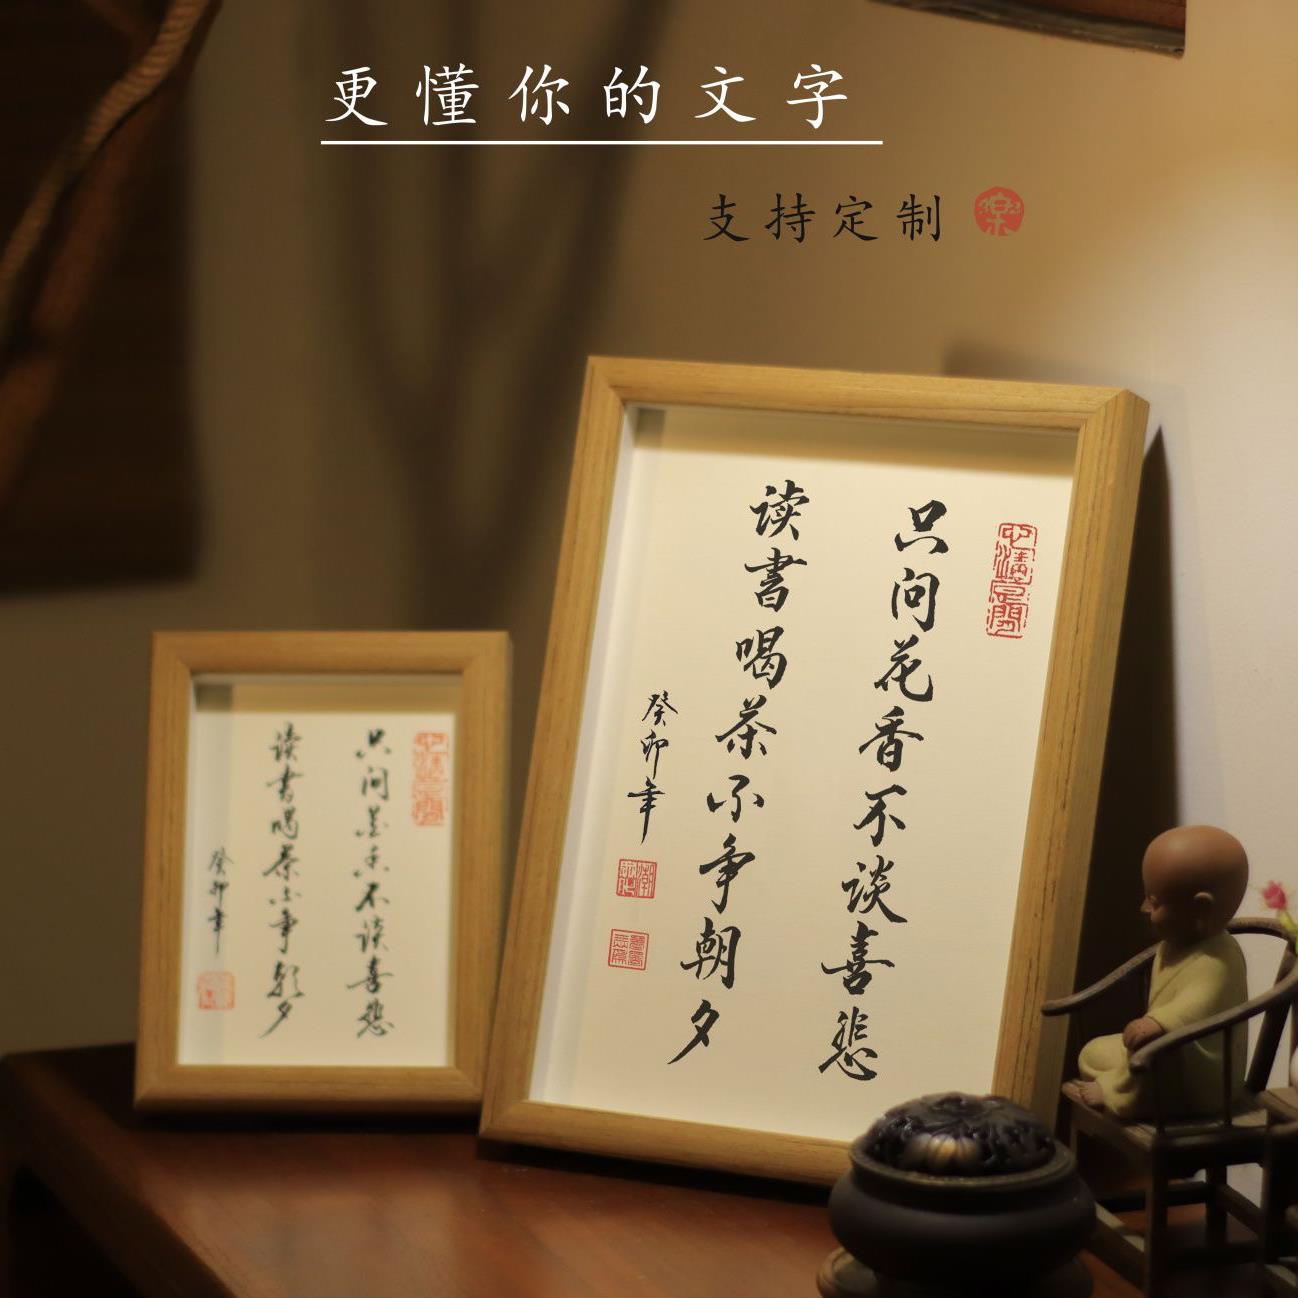 更懂你的文字
支持定制
樂
只问花香不谈喜悲
读书喝茶不争朝夕
癸卯年
只问墨香不谈喜悲
读书喝茶不争朝夕
癸卯年